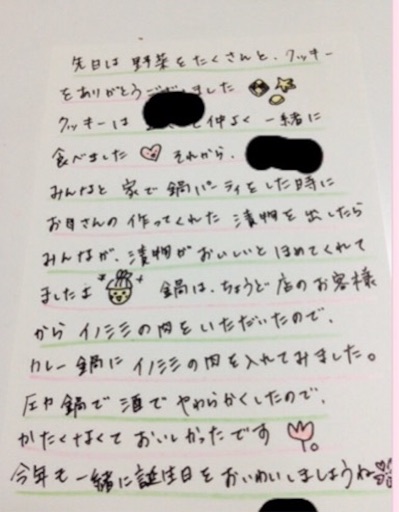 先日は 野菜をたくさんと、クッキー
をありがとうございました
クッキーは と仲よく 一緒に
食べました それから、
みんなと 家で 鍋パーティをした時に
お母さんの 作ってくれた 漬物を 出したら
みんなが、漬物が おいしいと ほめてくれて
ましたよ 鍋は、ちょうど 店の お客様
から イノシシの肉を いただいたので、
カレー鍋に イノシシの肉を 入れてみました。
圧力鍋で 酒で やわらかくしたので、
かたくなくて おいしかったです
今年も 一緒に 誕生日を おいわいしましょうね